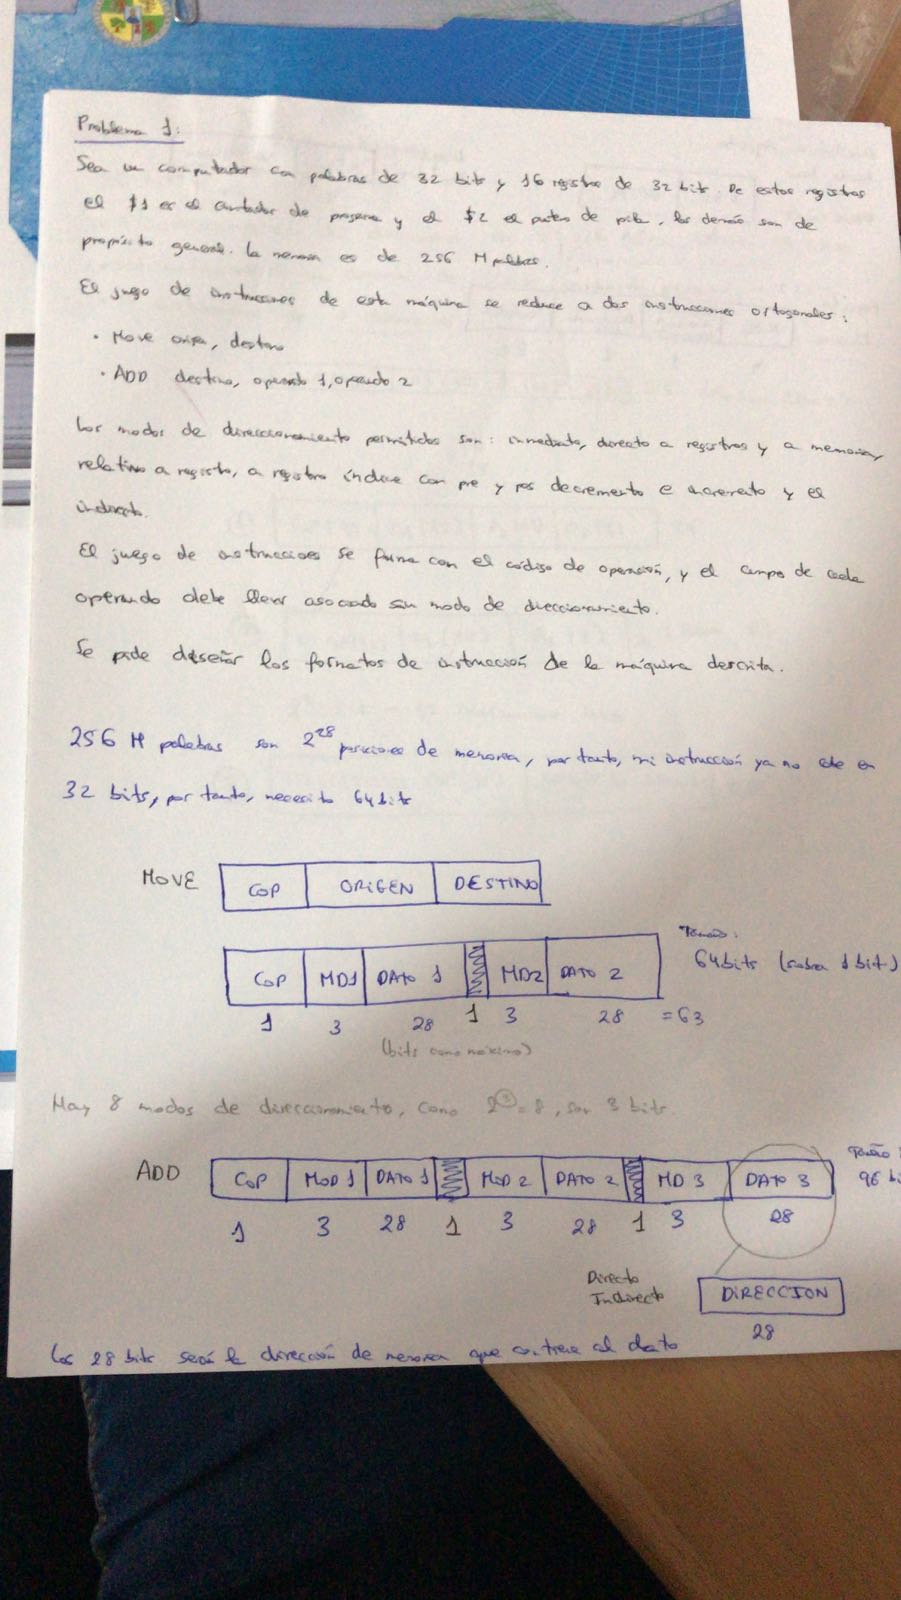 Problema 1:
Sea un computador con palabras de 32 bits y 16 registros de 32 bits. De estos registros
el $1 es el contador de programa y el $2 el puntero de pila, los demás son de
propósito general. La memoria es de 256 M palabras.
El juego de instrucciones de esta máquina se reduce a dos instrucciones ortogonales:
• Move origen, destino
• ADD destino, operando 1, operando 2
Los modos de direccionamiento permitidos son: inmediato, directo a registros y a memoria,
relativo a registro, a registro índice con pre y pos decremento e incremento y el
indirecto.
El juego de instrucciones se forma con el código de operación, y el campo de cada
operando debe llevar asociado su modo de direccionamiento.
Se pide diseñar los formatos de instrucción de la máquina descrita.
256 M palabras son 2^28 posiciones de memoria, por tanto, mi instrucción ya no cabe en
32 bits, por tanto, necesito 64 bits
MOVE COP ORIGEN DESTINO
Tamaño:
64 bits (sobra 1 bit)
COP MD1 DATO 1 MD2 DATO 2
1 3 28 1 3 28 = 63
(bits como máximo)
Hay 8 modos de direccionamiento, como 2^3 = 8, son 3 bits.
Tamaño:
ADD COP MOD 1 DATO 1 MOD 2 DATO 2 MD 3 DATO 3 96
1 3 28 1 3 28 1 3 28
Directo
Indirecto DIRECCION
28
Los 28 bits serán la dirección de memoria que contiene al dato